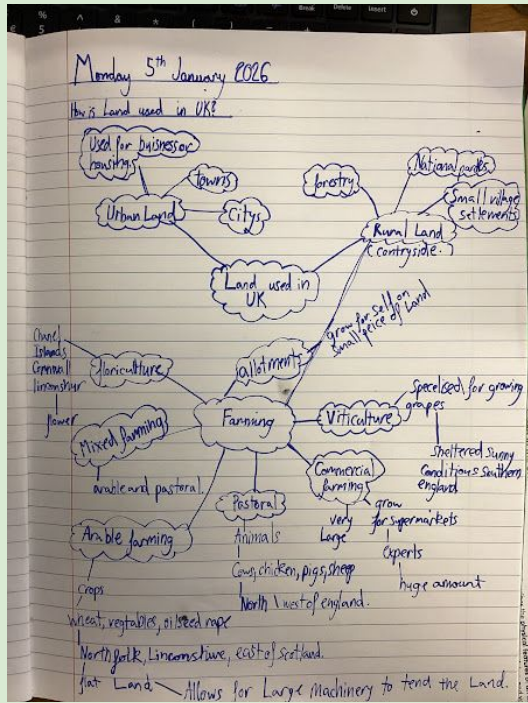 Monday 5th January 2026
How is Land used in UK?
Used for buisness or
housing.
towns
Citys
Urban Land
forestry
National parks
Small village
setlements
Rural Land
(contryside.)
Land used in
UK
allotments
grow for self on
small peice of Land
Chanel
Islands
Cornwall
linconshur
flower
floriculture
Farming
Viticulture
Specelised for growing
grapes
Sheltered sunny
Conditions Southern
england
Mixed farming
arable and pastoral.
Commercial
farming
very
Large
grow
for supermarkets
Experts
huge amount
Pastoral
Animals
Cows, chicken, pigs, sheep
North \ west of england.
Arable farming
crops
wheat, vegtables, oilseed rape
Northfolk, Linconshire, east of scotland.
flat Land
Allows for Large machinery to tend the Land.